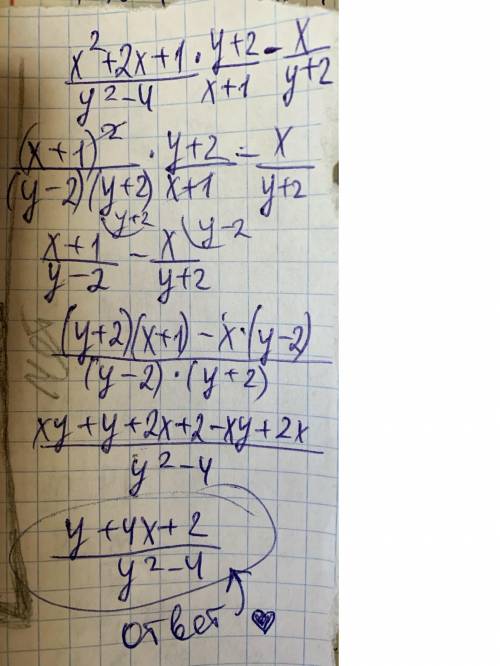 x²+2x+1 / y²-4 · y+2 / x+1 - x / y+2
(x+1)² / (y-2)(y+2) · y+2 / x+1 - x / y+2
x+1 / y-2 (y+2 - x / y+2 (y-2
(y+2)(x+1) - x·(y-2) / (y-2)·(y+2)
xy+y+2x+2-xy+2x / y²-4
y+4x+2 / y²-4
ответ